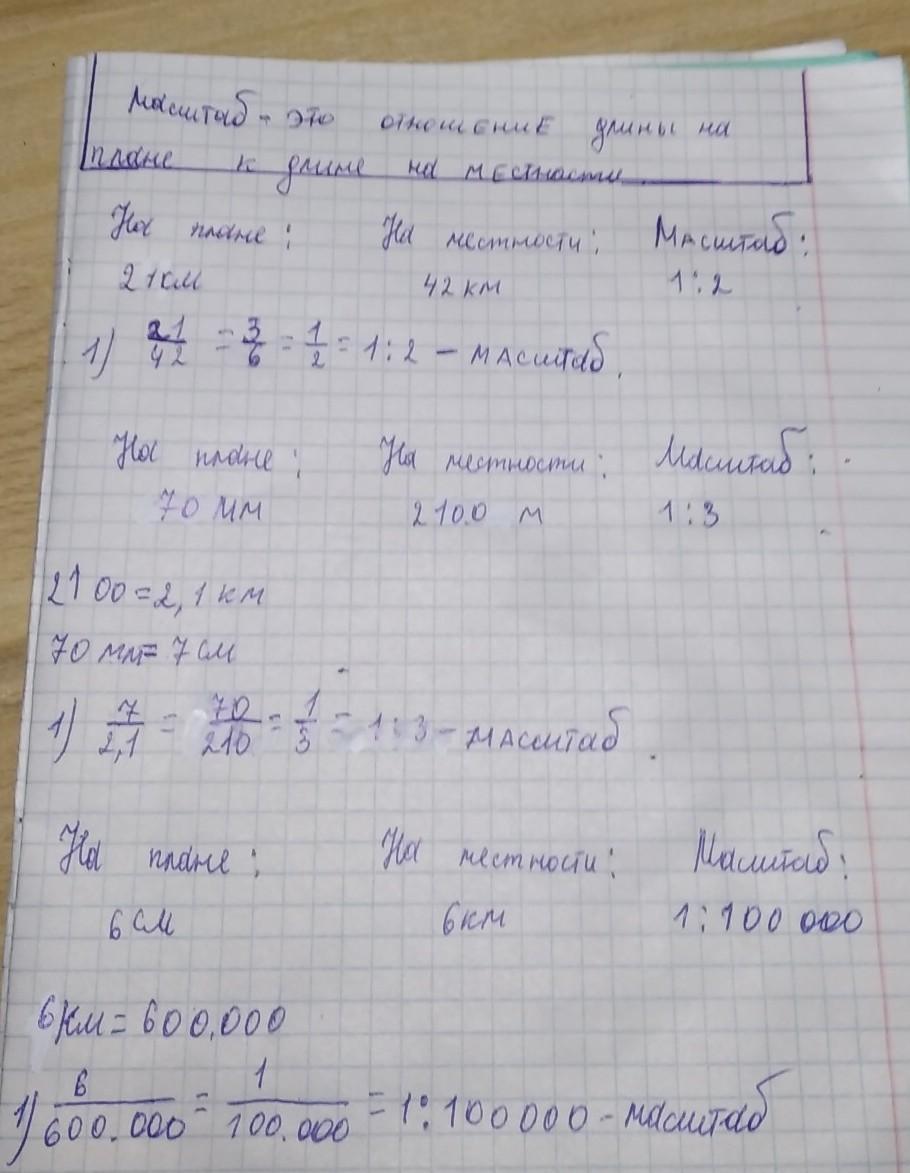 Масштаб - это отношение длины на
плане к длине на местности
На плане: На местности: Масштаб:
21км 42 км 1:2
1) 21/42 = 3/6 = 1/2 = 1:2 - масштаб.
На плане: На местности: Масштаб:
70 мм 2100 м 1:3
2100=2,1 км
70 мм= 7см
1) 7/2,1 = 70/210 = 1/3 = 1:3 - масштаб.
На плане: На местности: Масштаб:
6см 6км 1:100 000
6км = 600.000
1) 6/600.000 = 1/100.000 = 1:100000 - масштаб